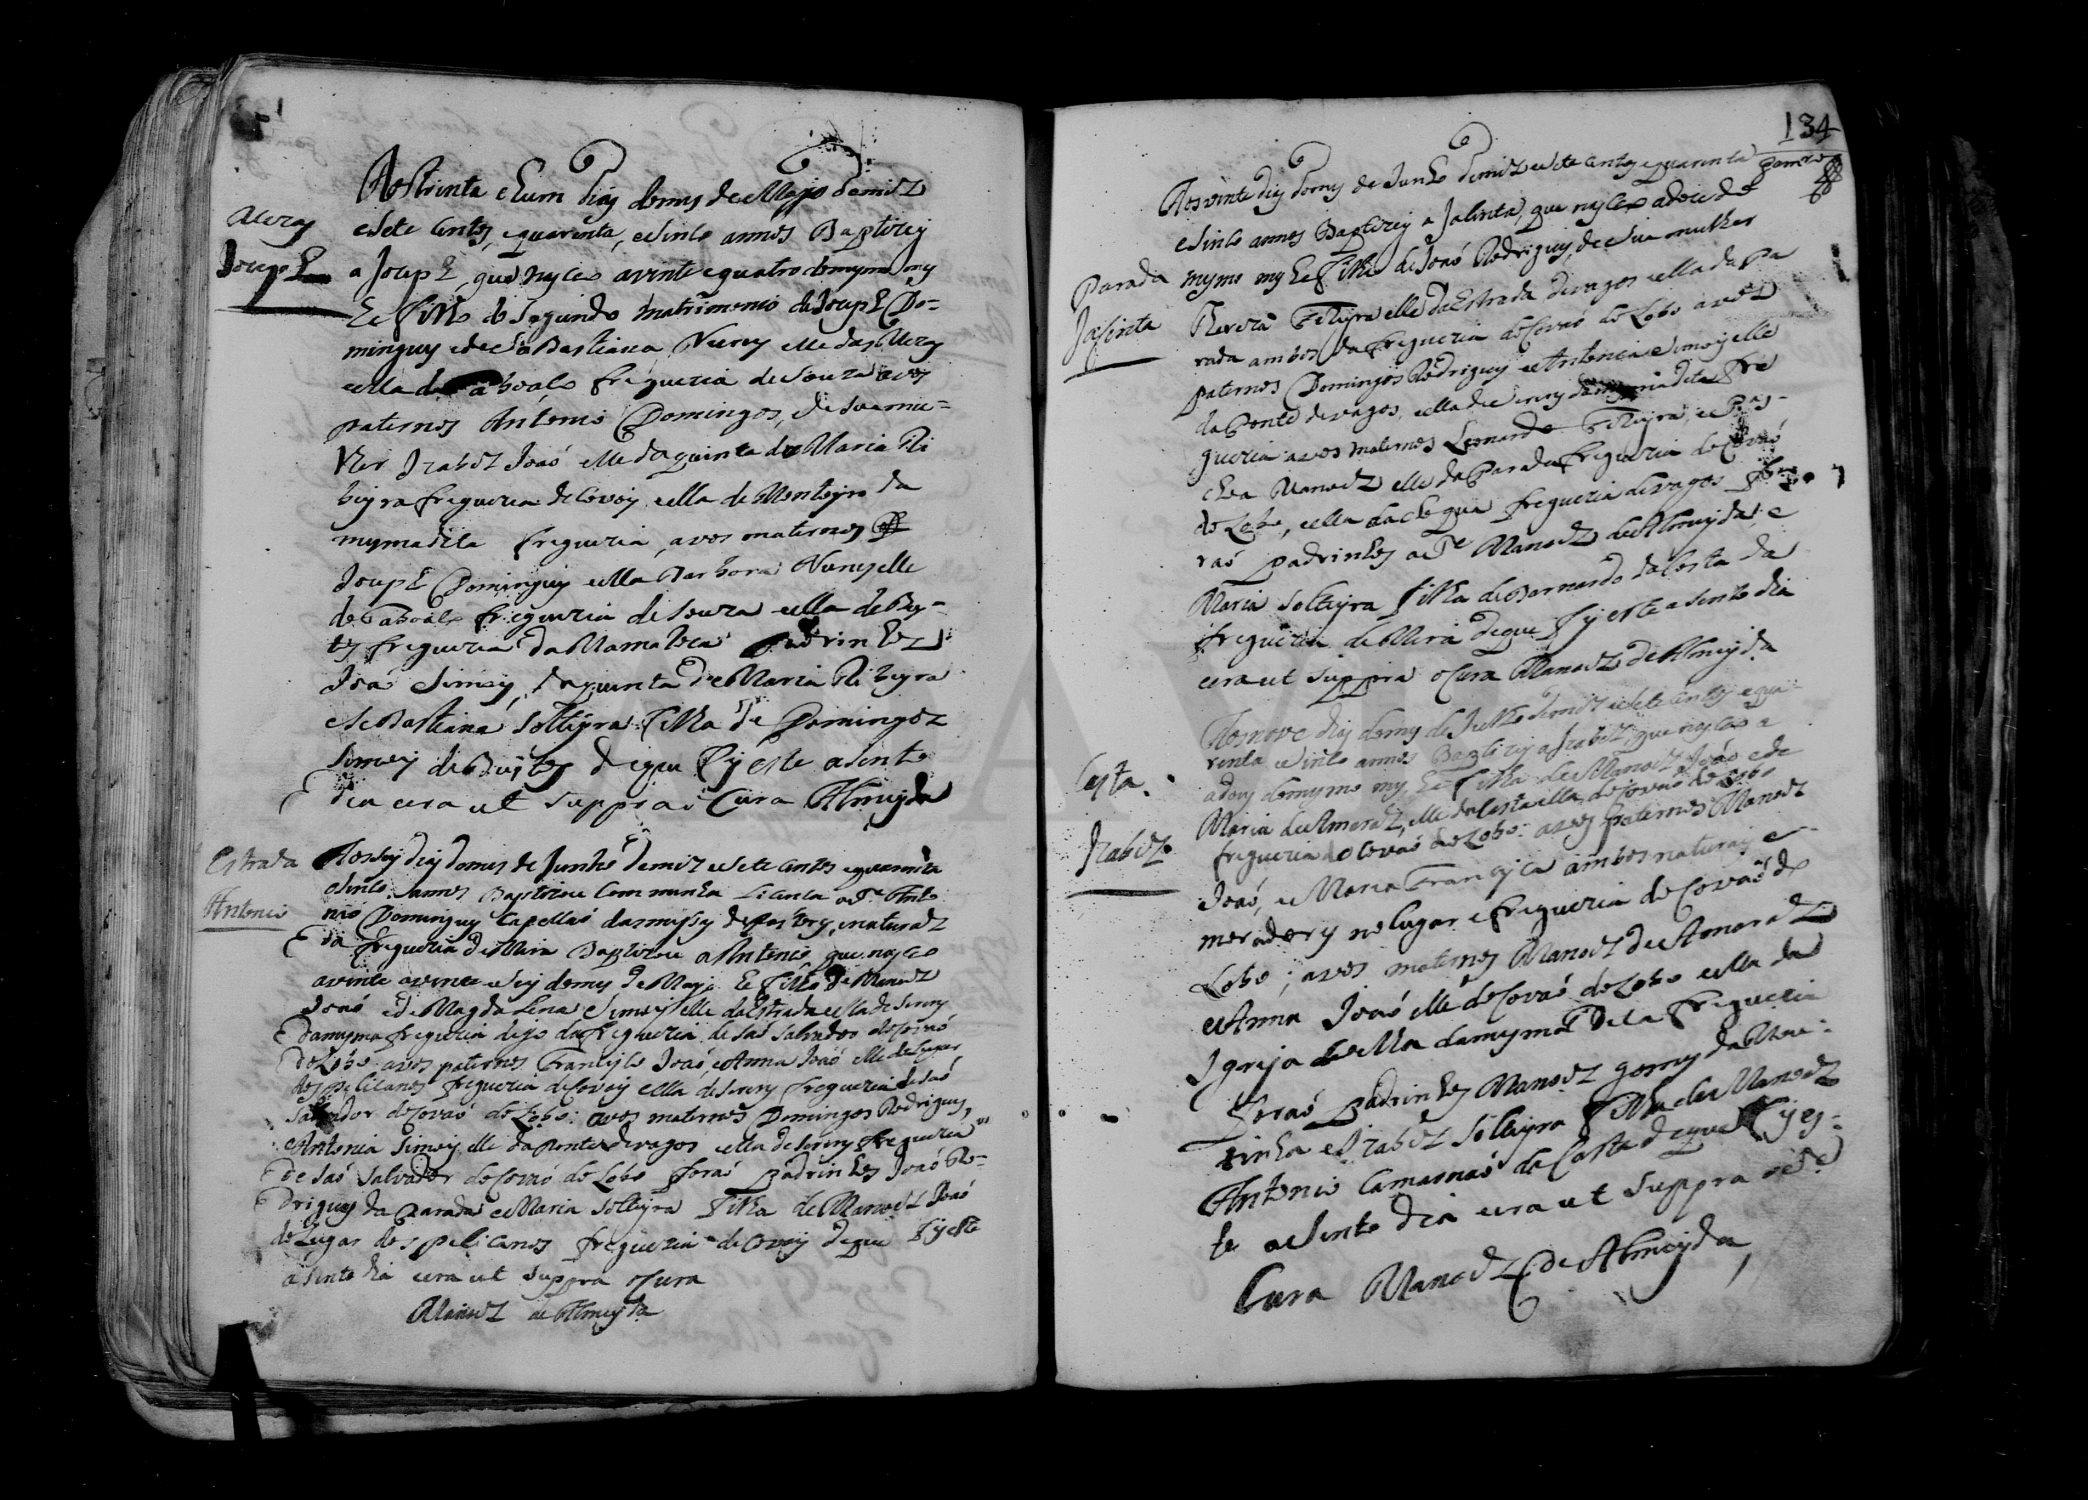 Aos trinta e hum dias domes de Mayo demil
esete centos, equarenta, esinco annos Baptizey
Meroz
Joseph
a Joseph, que nasceo avinte equatro domesmo mes
he filho do segundo matrimonio de Joseph Do=
minguez edeSeBastiana Nunez elle das Meroz
eella de aboalo freguezia de Souza avos
paternos Antonio Domingos, desua mu=
lher Izabel Joaõ elle daquinta de Maria Ri
beyra freguezia deCovoiz eella de Monteyro da
mesmadita freguezia, avos maternos
Joseph Dominguez eella Barbora Nunez elle
de aboalo freguezia de Souza eella deBuy=
tes freguezia da Mamaroza Padrinhos
Joaõ Simoiz, daquinta deMaria Ribeyra
eSeBastiana solteyra filha de Domingos
Simoiz deBuytes deque fiz este asento
dia eera ut suppra o Cura Almeyda
Estrada
Antonio
Aosseis dias domes de Junho demil esete centos equarenta
esinco annos Baptizou Com minha Licença oPe Anto
nio Dominguez Capellaõ dasmissas de enatural
da freguezia deMira Baptizou aAntonio, que nasceo
avinte eseis domes deMayo he filho de Manoel
Joaõ edeMagdalena Simois elle daEstrada eella de
damesma freguezia digo da freguezia de Saõ Salvador deCovaõ
deLobo avos paternos Francisco Joaõ, eAnna Joaõ elle do Lugar
dos pelicanos freguezia deCovoiz eella de freguezia de Saõ
Salvador deCovaõ deLobo: avos maternos Domingos Rodriguez,
eAntonia Simois elle da Ponte devagos eella de freguezia
de Saõ Salvador deCovaõ do Lobo foraõ Padrinhos Joaõ Ro=
driguez da Parada eMaria solteyra filha de Manoel Joaõ
do Lugar dos pelicanos freguezia deCovoiz deque fiz este
asento dia eera ut suppra oCura
Manoel de Almeyda
134
Aos vinte dias domes de Junho demil esete centos equarenta
esinco annos Baptizey a Jasinta, que nasceo adoze do
Parada
Jasinta
mesmo mes he filha de Joaõ Rodriguez, de Sua mulher
Thereza Felleyra elle daEstrada devagos eella da Pa
rada ambos da freguezia deCovaõ do Lobo avos
paternos Domingos Rodriguez eAntonia Simois elle
da Ponte devagos, eella de damesmadita fre
guezia avos maternos Leonardo Felleyra, e Pas=
choa Manoel elle da Parada freguezia de Covaõ
do Lobo, eella daclegua freguezia devagos fo=
raõ padrinhos oPe Manoel deAlmeyda, e
Maria solteyra filha de Bernardo da Costa da
freguezia deMira deque fiz este asento dia
eera ut suppra oCura Manoel deAlmeyda
Costa
Izabel
Aosnove dias domes de Julho demil esete centos equa=
renta esinco annos Baptizey aIzabel que nasceo a
adous domesmo mes he filha de Manoel Joaõ ede
Maria de Amaral, elle daCosta eella, deCovaõ do Lobo
freguezia de Covaõ do Lobo: avos paternos Manoel
Joaõ, e Maria Francisca ambos naturais e
moradores no lugar efreguezia deCovaõ do
Lobo; avos maternos Manoel de Amaral
eAnna Joaõ elle deCovaõ do Lobo eella da
Igreja damesma dita freguezia
foraõ padrinhos Manoel gomes da Mou=
rinha eIzabel solteyra filha de Manoel
Antonio Camarnaõ da Costa deque fiz es=
te asento dia eera ut suppra oPe
Cura Manoel de Almeyda,